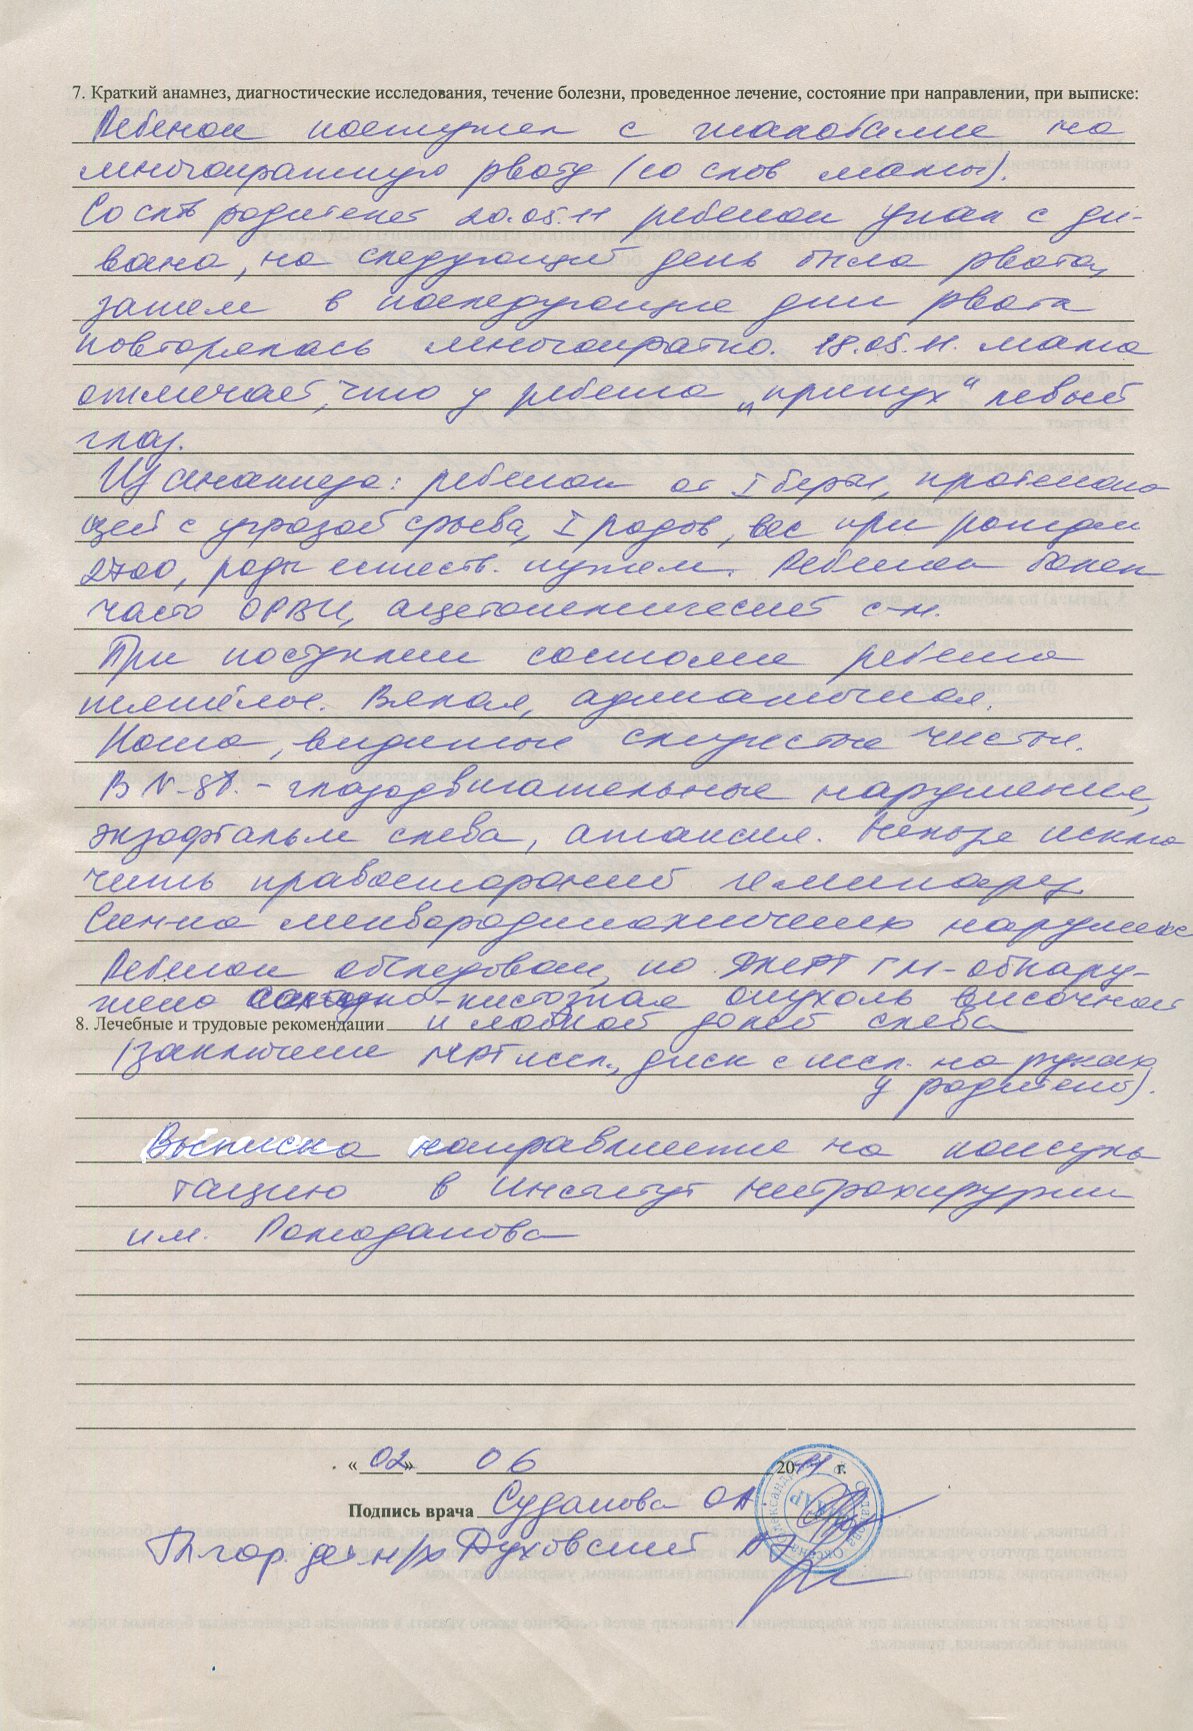 7. Краткий анамнез, диагностические исследования, течение болезни, проведенное лечение, состояние при направлении, при выписке:
Ребенок поступил с жалобами на
многократную рвоту (со слов мамы).
Со слов родителей 20.05.11 ребенок упал с ди-
вана, на следующий день была рвота,
затем в последующие дни рвота
повторялась многократно. 28.05.11. мама
отмечает, что у ребенка „припух“ левый
глаз.
Из анамнеза: ребенок от I берем, протекаю
щей с угрозой срыва, I родов, вес при рожден
2700, роды естеств. путем. Ребенок болел
часто ОРВИ, ацетонемический с-м.
При поступлении состояние ребенка
тяжёлое. Вялая, адинамичная.
Кожа, видимые слизистые чистые.
В - глазодвигательные нарушения,
экзофтальм слева, атаксия. Нельзя исклю
чить правосторонний гемипарез
ликвородинамических нарушен
Ребенок обследован, по ЯМРТ ГМ - обнару-
жено -кистозная опухоль височной
8. Лечебные и трудовые рекомендации и лобной долей слева
(заключение МРТ иссл., диск с иссл. на руках
у родителей).
Выписка направление на консуль
тацию в институт нейрохирургии
им. Ромоданова
« 02 » 06 2011 г.
Подпись врача Суданова ОА
Гл. гор. дет н/х Духовский АЭ